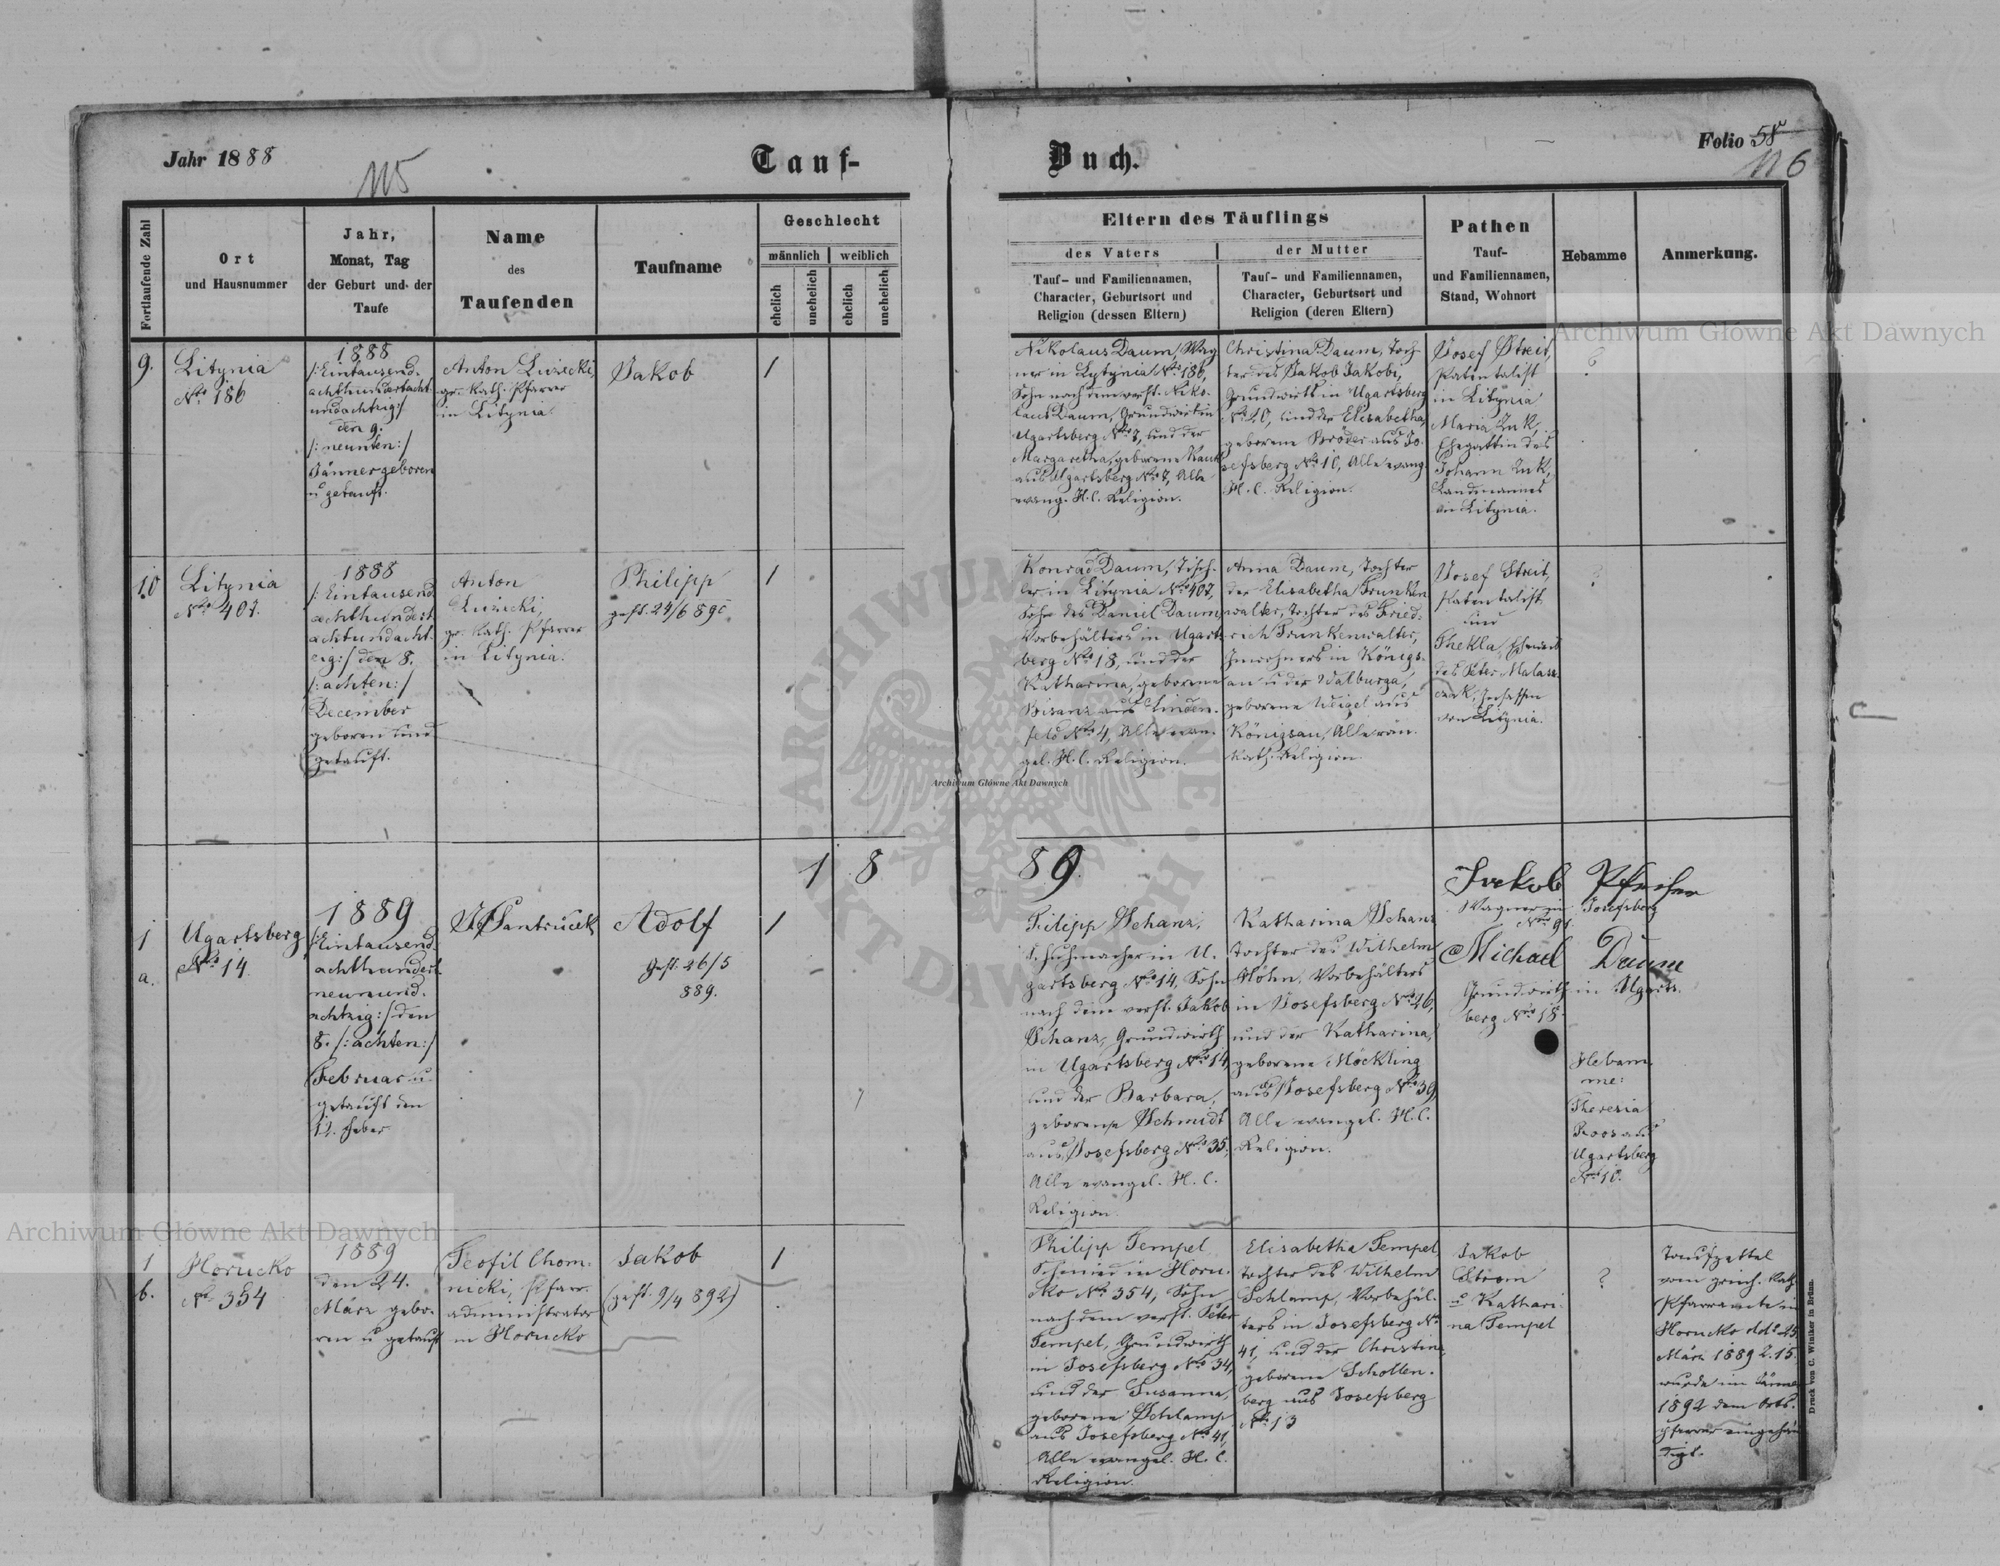 Jahr 1888
115
Tauf-
Buch.
Folio 58
116
Fortlaufende Zahl
Ort
und Hausnummer
Jahr,
Monat, Tag
der Geburt und der
Taufe
Name
des
Taufenden
Taufname
Geschlecht
männlich
weiblich
ehelich
unehelich
ehelich
unehelich
Eltern des Täuflings
des Vaters
Tauf- und Familiennamen,
Character, Geburtsort und
Religion (dessen Eltern)
der Mutter
Tauf- und Familiennamen,
Character, Geburtsort und
Religion (deren Eltern)
Pathen
Tauf-
und Familiennamen,
Stand, Wohnort
Hebamme
Anmerkung.
9.
Litynia
No 186
1888
/:Eintausend-
achthundertacht-
undachtzig:/
den 9.
/:neunten:/
Jänner geboren
u getauft.
Anton Luzicki,
gr. kath. Pfarrer
in Litynia.
Jakob
1
Nikolaus Daum, Wag-
ner in Lytynia No 186,
Sohn nach dem verst. Niko-
laus Daum, Grundwirt in
Ugartsberg No 3, und der
Margaretha, geborene
aus Ugartsberg No 7, Alle
evang. H.C. Religion.
Christina Daum, Toch-
ter des Jakob Jakobi,
Grundwirts in Ugartsberg
No 20, und der Elisabetha,
geborene Bröder aus Jo-
sefsberg No 10, Alle evang.
H.C. Religion.
Josef Streit,
Patentalist
in Litynia
Maria Zuk,
Ehegattin des
Johann Zuk,
Landmannes
in Litynia.
?
10
Litynia
No 407.
1888
/:Eintausend
achthundert
achtundacht-
zig:/ den 8.
/:achten:/
December
geboren und
getauft.
Anton
Luzicki,
gr. kath. Pfarrer
in Litynia.
Philipp
gest. 24/6 890
1
Konrad Daum, Tisch-
ler in Litynia No 407,
Sohn des Daniel Daum,
Vorbehälters in Ugarts-
berg No 18, und der
Katharina, geborene
Bisanz aus Linden-
feld No 4, Alle evan-
gel. H.C. Religion.
Anna Daum, Tochter
der Elisabetha Trunken-
walter, Tochter des Fried-
rich Trunkenwalter,
Inwohners in Königs-
au u der Walburga,
geborene Weigel aus
Königsau, Alle röm.
kath. Religion.
Josef Streit,
Patentalist
und
Thekla, Eheweib
des Peter Malasz-
czak, Insassen
von Litynia.
?
1889.
1
a.
Ugartsberg
No 14.
1889
/:Eintausend
achthundert
neunund-
achtzig:/ den
8. /:achten:/
Februar u.
getauft den
12. Feber
Santrucek
Adolf
Gest. 26/5
889.
1
Filipp Schanz,
Schuhmacher in U-
gartsberg No 14, Sohn
nach dem verst. Jakob
Schanz, Grundwirth
in Ugartsberg No 14,
und der Barbara,
geborene Schmidt
aus Josefsberg No 35,
Alle evangel. H.C.
Religion.
Katharina Schanz
Tochter des Wilhelm
Höhn, Vorbehälters
in Josefsberg No 26,
und der Katharina,
geborene Möckling
aus Josefsberg No 39,
Alle evangel. H.C.
Religion.
Jakob
Wagner in Josefsberg
No 91.
Michael Daum
Grundwirth in Ugarts-
berg No 18.
Hebam-
me:
Theresia
Roos aus
Ugartsberg
No 10.
1
b.
Horucko
No 354
1889
den 24.
März gebo-
ren u getauft
Teofil Chom-
nicki, Pfarr-
administrator
in Horucko
Jakob
(gest. 9/4 892)
1
Philipp Tempel,
Schmied in Horu-
cko No 354, Sohn
nach dem verst. Peter
Tempel, Grundwirth
in Josefsberg No 34,
und der Susanna,
geborene Schlamp
aus Josefsberg No 41,
Alle evangel. H.C.
Religion.
Elisabetha Tempel
Tochter des Wilhelm
Schlamp, Vorbehäl-
ters in Josefsberg No
41, und der Christina,
geborene Schollen-
berg aus Josefsberg
No 13
Jakob
Strom
u Kathari-
na Tempel
?
Taufzettel
vom griech. kath.
Pfarramte in
Horucko ddo 25
März 1889 Z. 15.
wurde im Jänner
1892 dem Orts-
pfarrer eingehän-
digt.
Druck von C. Winiker in Brünn.
Archiwum Główne Akt Dawnych
Archiwum Główne Akt Dawnych
Archiwum Główne Akt Dawnych
ARCHIWUM GŁÓWNE AKT DAWNYCH